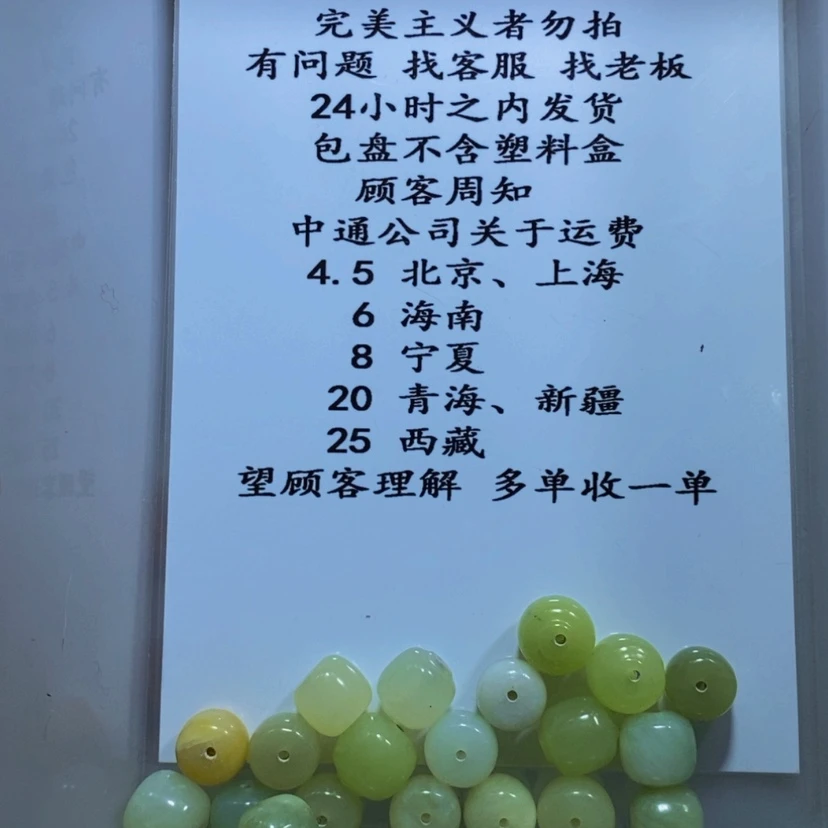 完美主义者勿拍
有问题 找客服 找老板
24小时之内发货
包盘不含塑料盒
顾客周知
中通公司关于运费
4.5 北京、上海
6 海南
8 宁夏
20 青海、新疆
25 西藏
望顾客理解 多单收一单